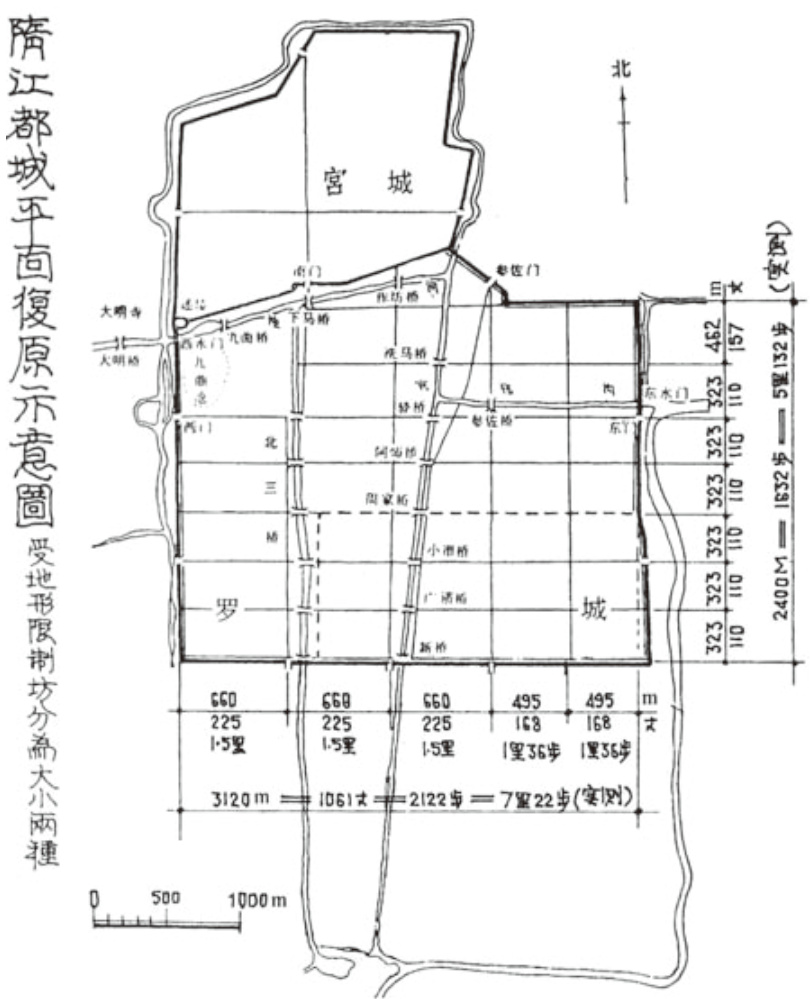 隋江都城平面復原示意圖
受地形限制坊分為大小兩種
北
宮城
南门
参佐门
作坊桥
下马桥
大明寺
大明桥
西水门
九曲桥
九曲池
洗马桥
东水门
参佐桥
西门
东门
阿师桥
周家桥
小市桥
广济桥
新桥
北三桥
罗城
m
丈
462
157
323
110
323
110
323
110
323
110
323
110
323
110
2400M = 1632步 = 5里132步(实测)
660
668
660
495
495
m
225
225
225
168
168
丈
1.5里
1.5里
1.5里
1里36步
1里36步
3120m = 1061丈 = 2122步 = 7里22步(实测)
0
500
1000m